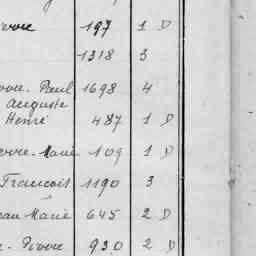 197 1 D
1318 3
Paul 1698 4
Auguste
Henri 487 1 D
Marie 109 1 D
Francois 1190 3
Marie 645 2 D
Pierre 930 2 D